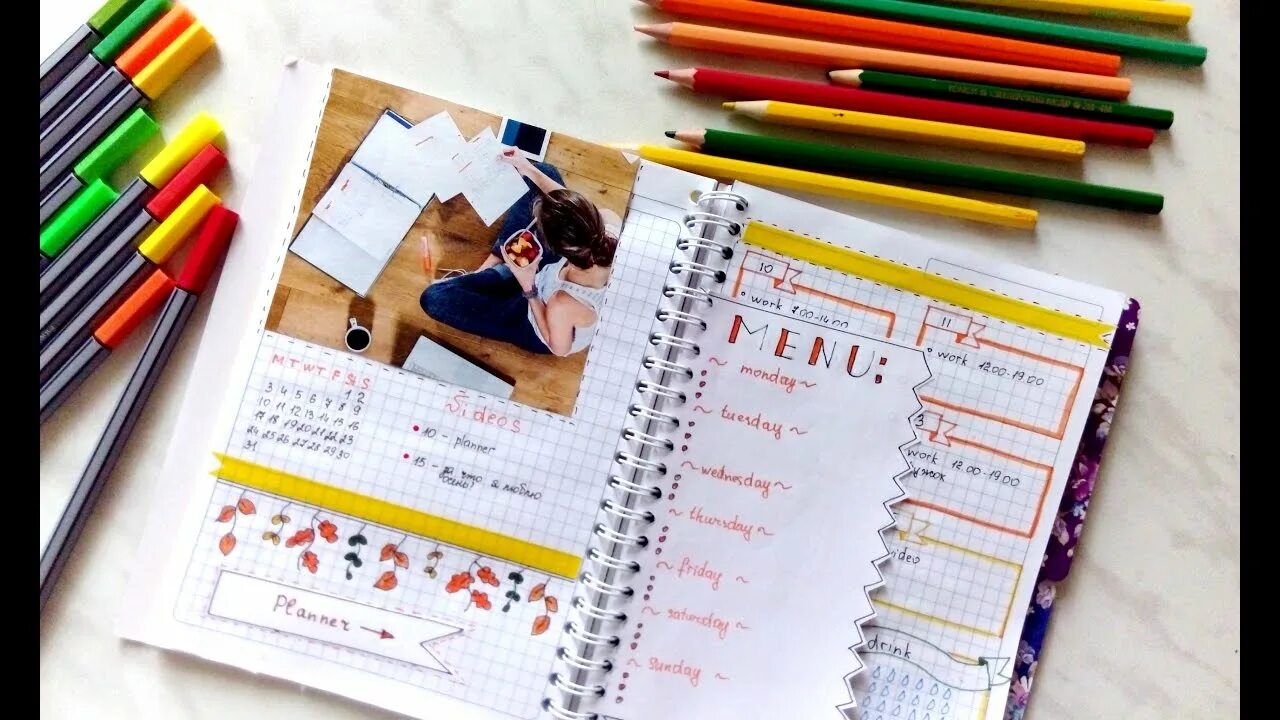 M T W T F S S
1 2
3 4 5 6 7 8 9
10 11 12 13 14 15 16
17 18 19 20 21 22 23
24 25 26 27 28 29 30
31
Videos
• 10 - planner
• 15 - за что я люблю
осень!
Planner →
10
• work 7.00-14.00
MENU:
~ monday ~
~ tuesday ~
~ wednesday ~
~ thursday ~
~ friday ~
~ saturday ~
~ sunday ~
11
• work 12.00-19.00
work 12.00-19.00
ideo
drink